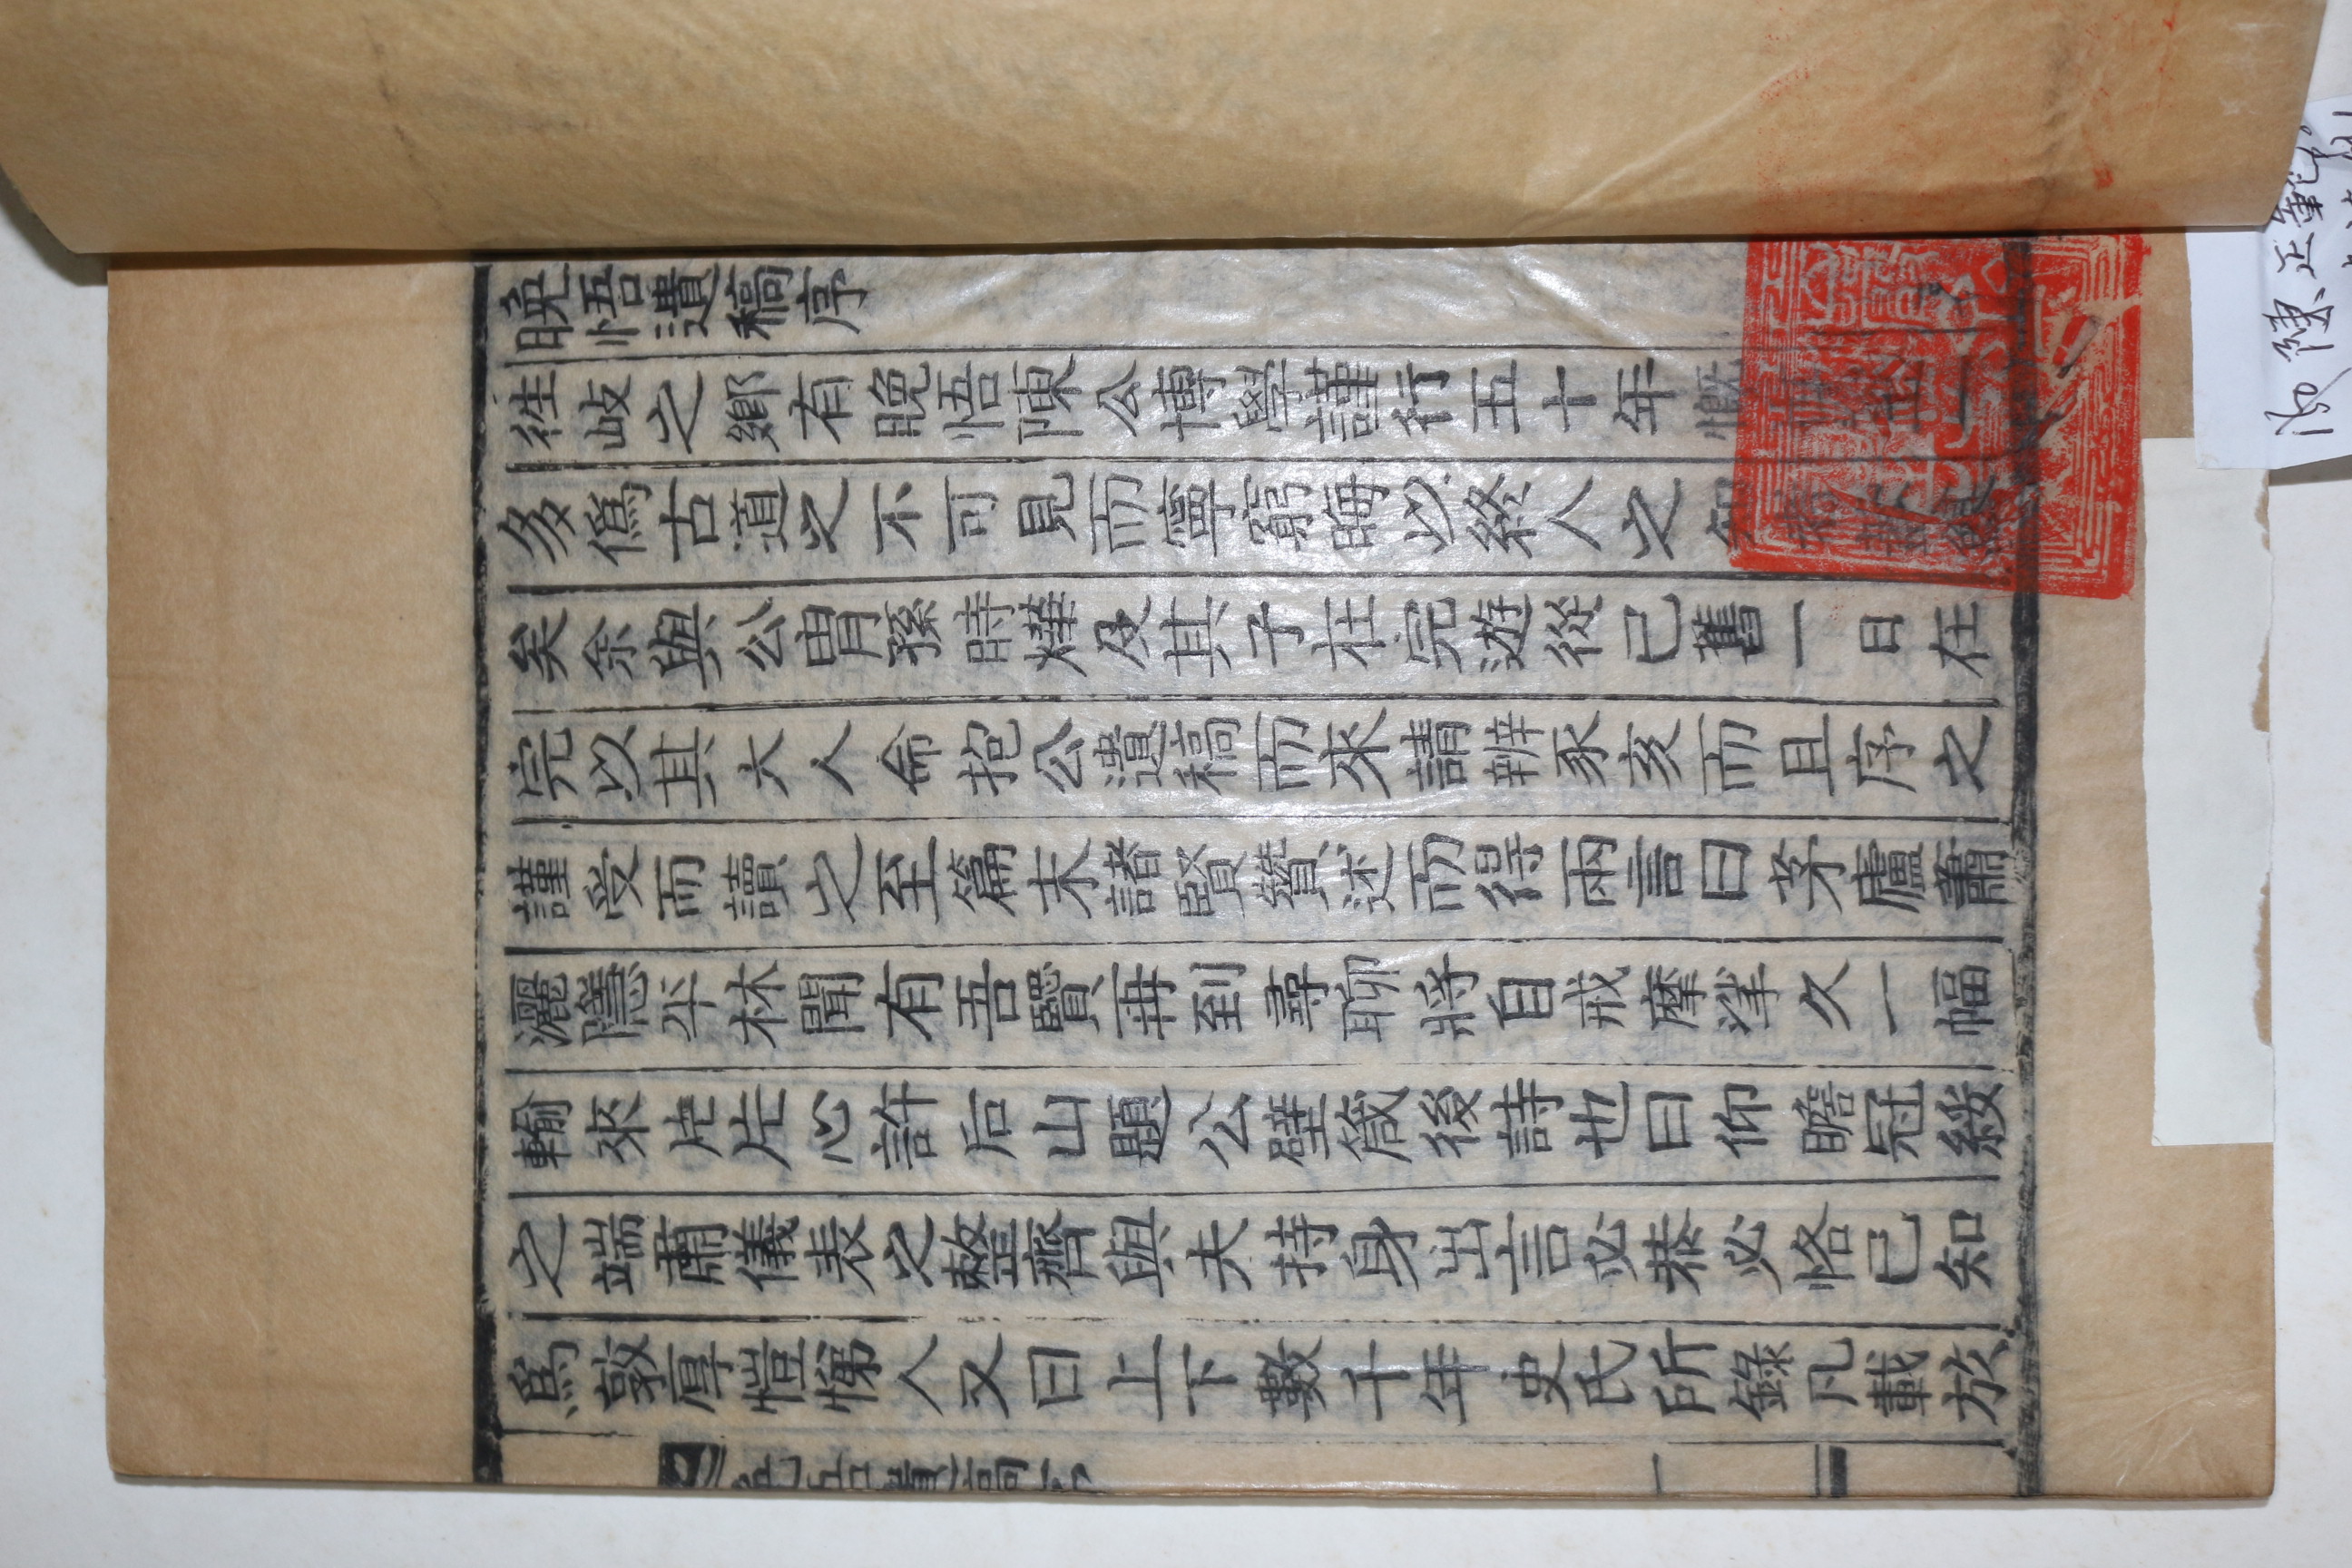 晩悟遺稿序
徃岐之鄉有晩悟陳公博學謹行五十年慨
多僞古道之不可見而寧窮晦以終人之知
矣余與公胄孫時燁及其子在完遊從已舊一日在
完以其六人命抱公遺稿而來請辨豕亥而且序之
謹受而讀之至篇末諸賢贊述而得兩言曰茅廬蕭
灑隱平林聞有吾賢再到尋聊將自戒摩挲久一幅
輸來片片心許后山題公壁箴後詩也曰仰瞻冠綏
之端肅儀表之整齊與夫持身出言必恭必恪已知
爲敦厚愷悌人又曰上下數千年史氏所錄凡載於
晩悟遺稿序
一
陳正範